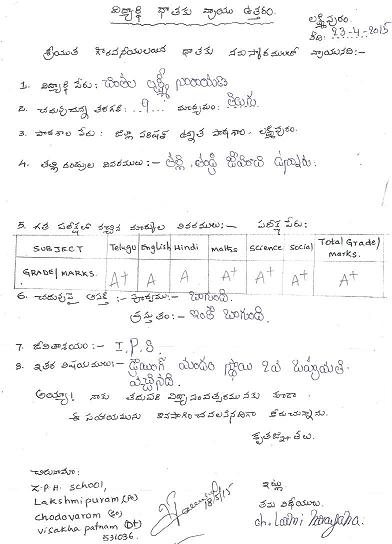 విద్యార్థి దాతకు వ్రాయు ఉత్తరం.
లక్ష్మీపురం,
తేది: 23-4-2015
శ్రీయుత గౌరవనీయులయిన దాతకు నమస్కారములతో వ్రాయునది:-
1. విద్యార్థి పేరు: చింతల లక్ష్మీ నారాయణ
2. చదువుచున్న తరగతి: ..9... మాధ్యమం: తెలుగు
3. పాఠశాల పేరు: జిల్లా పరిషత్ ఉన్నత పాఠశాల, లక్ష్మీపురం.
4. తల్లి దండ్రుల వివరములు:- తల్లి, తండ్రి జీవించి ఉన్నారు.
5. గత పరీక్షలో వచ్చిన మార్కుల వివరములు:- పరీక్ష పేరు:
SUBJECT Telugu English Hindi maths science social Total Grade/ marks.
GRADE/MARKS. A+ A A A+ A+ A+ A+
6. చదువుపై ఆసక్తి :- పూర్వము:- బాగుంది.
ప్రస్తుతం:- ఇంకా బాగుంది.
7. జీవితాశయం:- I.P.S.
8. ఇతర విషయములు:- డ్రాయింగ్ మండల స్థాయి 2వ బహుమతి
వచ్చినది.
అయ్యా! నాకు తదుపరి విద్యాసంవత్సరమునకు కూడా
ఈ సహాయమును కొనసాగించవలసినదిగా కోరుచున్నాను.
కృతజ్ఞతలు.
చిరునామా:
Z.P.H SCHOOL,
Lakshmipuram (Po)
chodavaram (M)
visakha patnam (Dt)
531036.
18/5/15
ఇట్లు
తమ విధేయుడు.
ch. Laxmi Narayana.